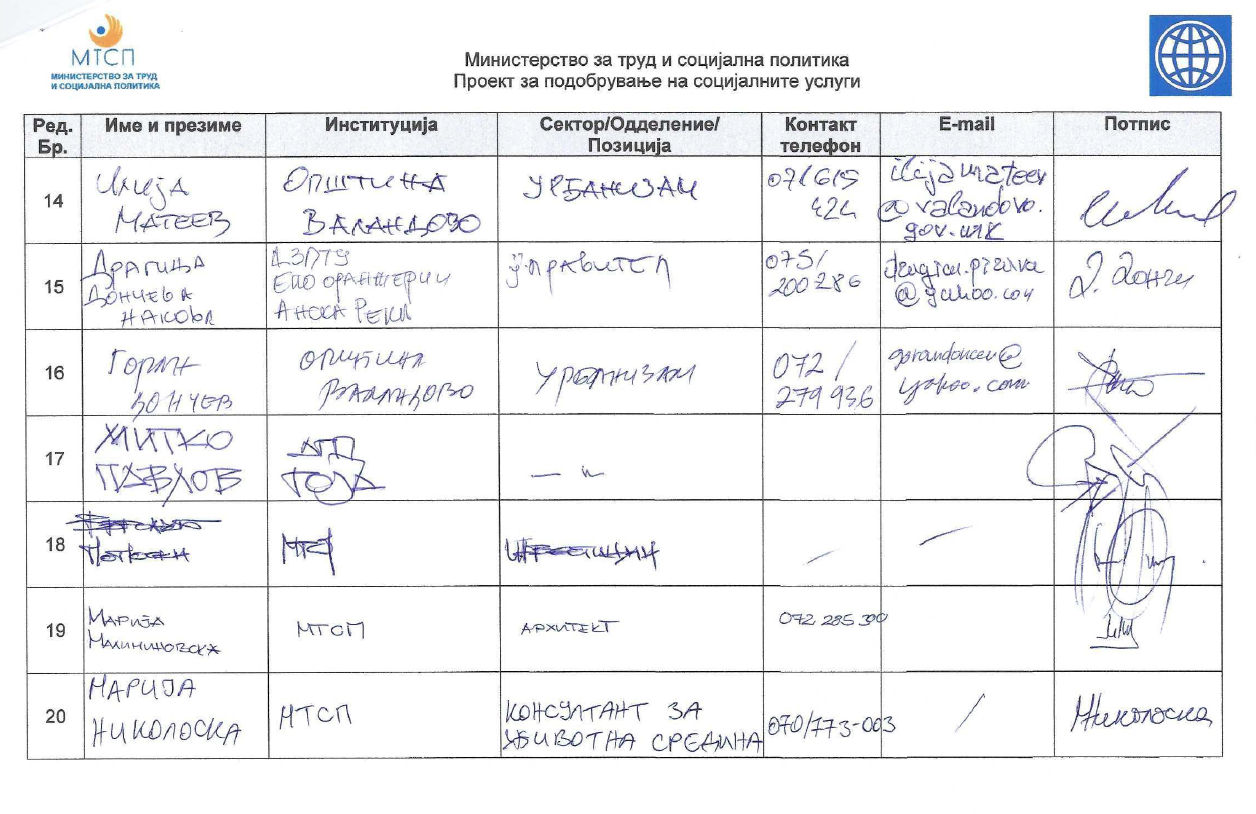 МТСП
МИНИСТЕРСТВО ЗА ТРУД
И СОЦИЈАЛНА ПОЛИТИКА
Министерство за труд и социјална политика
Проект за подобрување на социјалните услуги
Ред. Бр.
Име и презиме
Институција
Сектор/Одделение/
Позиција
Контакт
телефон
E-mail
Потпис
14
Илија
МАТЕЕВ
ОПШТИНА
ВАЛАНДОВО
УРБАНИЗАМ
071615
424
ilijamateev
@valandovo.
gov.mk
15
ДРАГИЦА
ДОНЧЕВА
НАКОВА
ЕКО ОРАНЖЕРИИ
АНСКА РЕКА
управител
075/
200286
@yahoo.com
16
ГОРАН
ДОНЧЕВ
ОПШТИНА
ВАЛАНДОВО
УРБАНИЗАМ
072/
279936
gorandoncev@
yahoo.com
17
МИТКО
ПАВЛОВ
— „ —
18
19
МАРИЈА
МАЛИНИНОВСКА
МТСП
АРХИТЕКТ
072 285 300
20
МАРИЈА
НИКОЛОСКА
МТСП
КОНСУЛТАНТ ЗА
ЖИВОТНА СРЕДИНА
070/773-003
/
Николоска